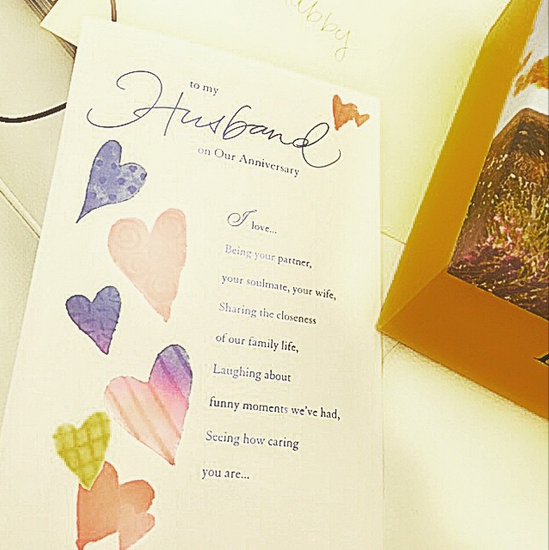 ubby
to my
Husband
on Our Anniversary
I love...
Being your partner,
your soulmate, your wife,
Sharing the closeness
of our family life,
Laughing about
funny moments we've had,
Seeing how caring
you are...